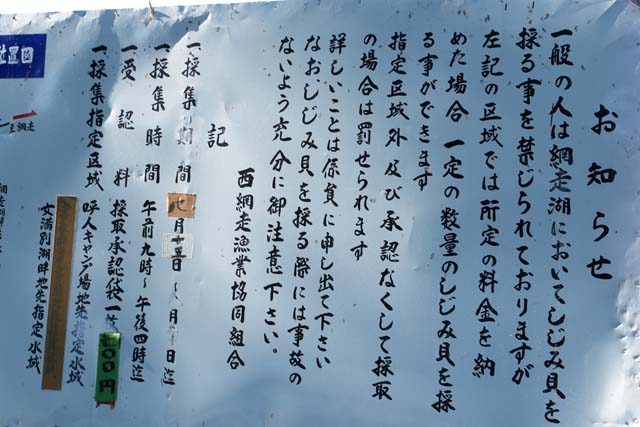 お知らせ
一般の人は網走湖においてしじみ貝を
採る事を禁じられておりますが
左記の区域では所定の料金を納
めた場合一定の数量のしじみ貝を採
る事ができます
指定区域外及び承認なくして採取
の場合は罰せられます
詳しいことは係員に申し出て下さい
なおしじみ貝を採る際には事故の
ないよう充分に御注意下さい。
西網走漁業協同組合
記
一、採集期間 七月十五日〜八月十日迄
一、採集時間 午前九時〜午後四時迄
一、受認料 採取承認袋一 00円
一、採集指定区域 呼人キャンプ場地先指定水域
女満別湖畔地先指定水域
位置図
至網走